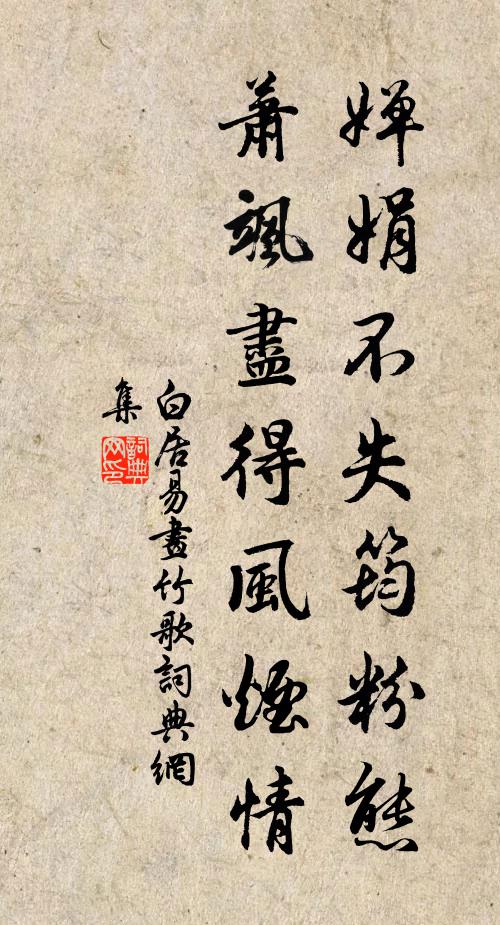 嬋娟不失筠粉態
蕭颯盡得風煙情
白居易畫竹歌詞典網
集
詞典
网印